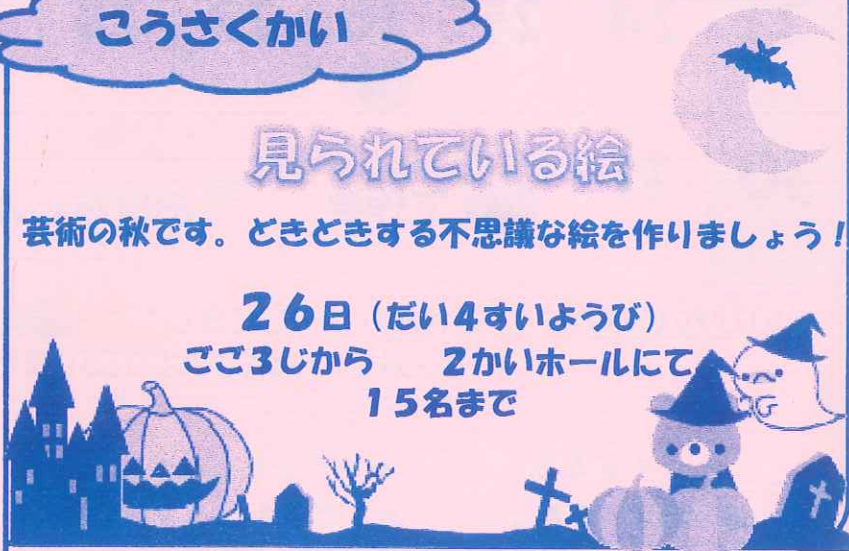 こうさくかい
見られている絵
芸術の秋です。どきどきする不思議な絵を作りましょう！
26日（だい4すいようび）
ごご3じから　2かいホールにて
15名まで